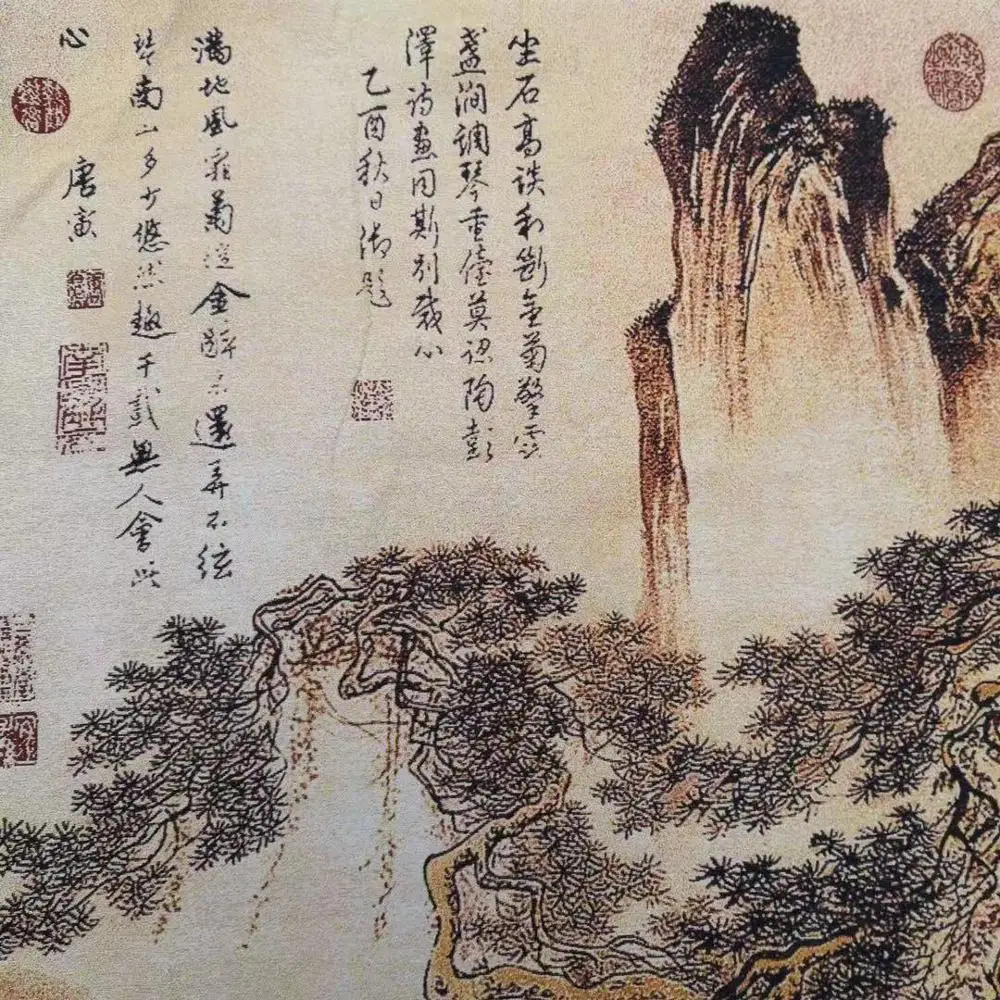 坐石高談利斷金菊擎雲
盞澗調琴重僮莫認陶彭
澤詩畫同斯別裁心
乙酉秋日御題
滿地風霜菊綻金醉來還弄不絃
琴南山多少悠然趣千載無人會此
心
唐寅